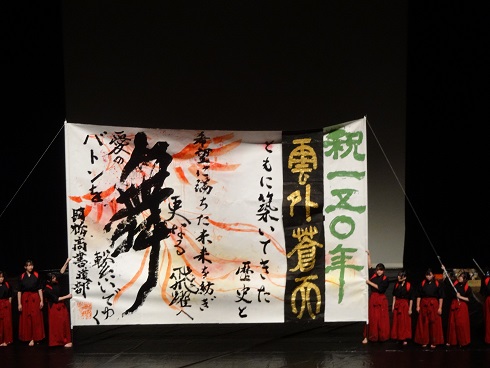 祝一五〇年
雲外蒼天
ともに築いてきた
歴史と
希望に満ちた未来を紡ぎ
更なる飛躍へ
舞
愛の
バトンを
繋いでゆく
高書道部